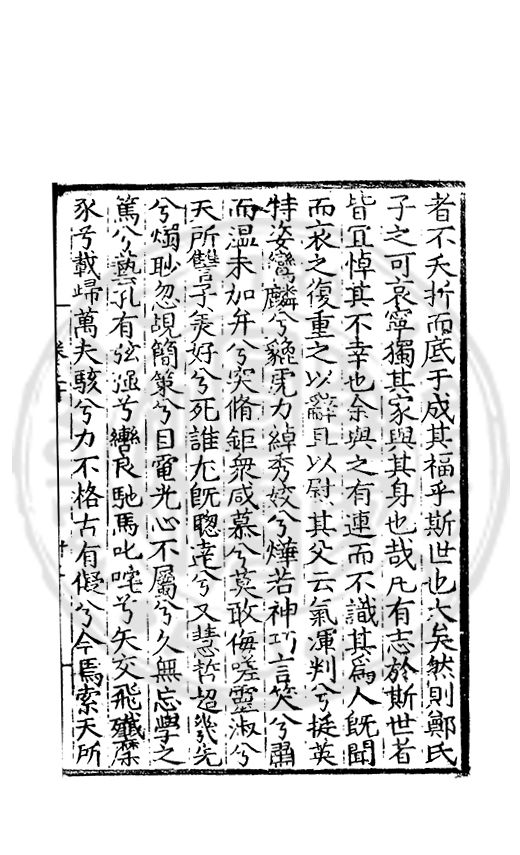 者不夭折而底于成其福乎斯世也大矣然則鄭氏
子之可哀寧獨其家與其身也哉凡有志於斯世者
皆宜悼其不幸也余與之有連而不識其為人既聞
而哀之復重之以辭且以慰其父云氣渾判兮挺英
特姿鸞麟兮龜虎力綽秀姣兮燁若神巧言笑兮肅
而溫未加弁兮突脩鉅衆咸慕兮莫敢侮嗟靈淑兮
天所讐子羨好兮死誰尤既聰達兮又慧哲超幾先
兮燭眇忽覘簡策兮目電光心不屬兮久無忘學之
篤兮藝孔有弦強兮轡良馳馬叱咤兮矢交飛殲
豕兮載歸萬夫駭兮力不格古有儗兮今焉索天所